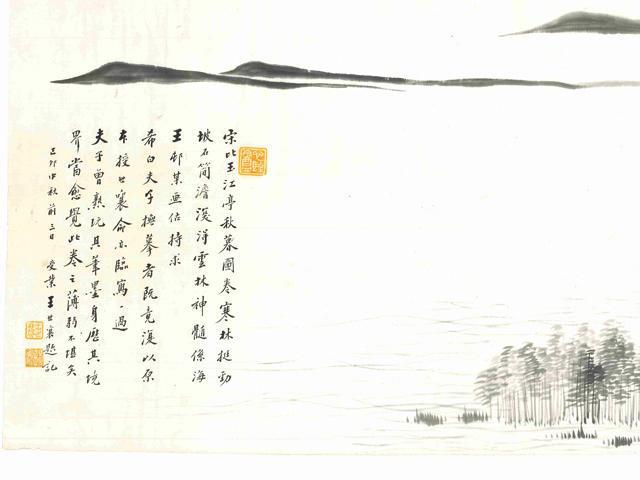 宋比玉江亭秋暮圖卷寒林挺勁
坡石簡澹深得雲林神髓係海
王邨某画估持求
希白夫子撫摹者既竟復以原
本授世襄命亦臨寫一過
夫子曾熟玩其筆墨身歷其境
界當愈覺此卷之薄弱不堪矣
己卯中秋前三日 受業王世襄題記